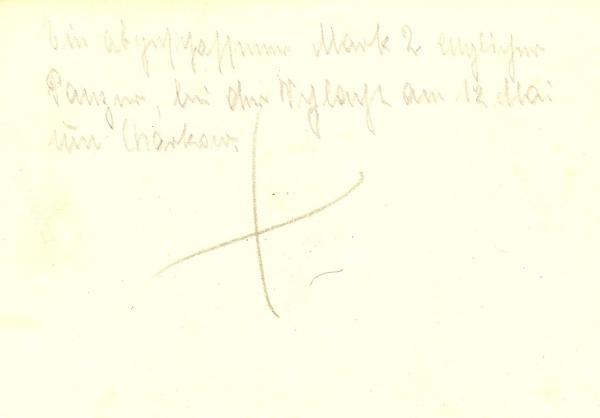 Ein abgeschossener Mark 2 englischer
Panzer, bei der Schlacht am 12 Mai
um Charkow.